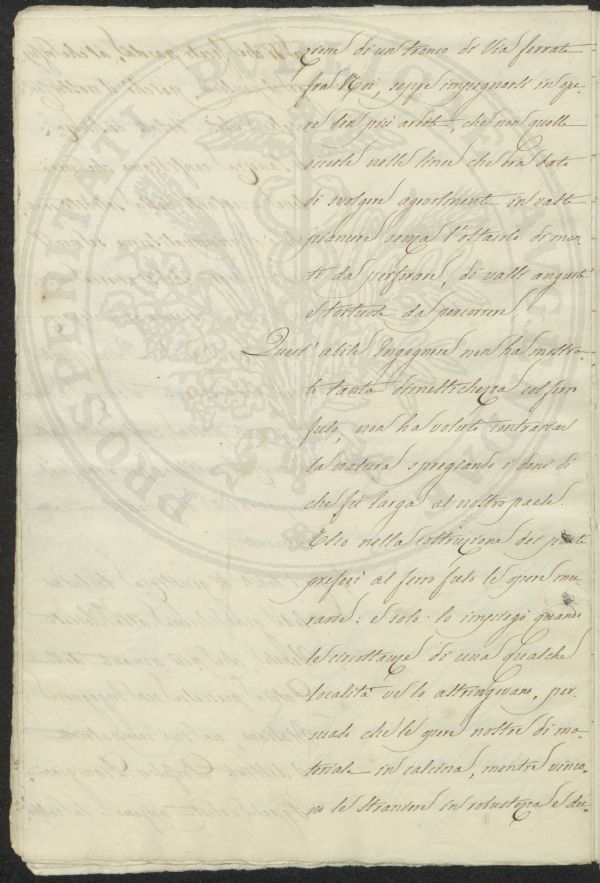 zione di un tronco di Via ferrata
fra Noi, seppe impegnarsi in ope-
re din più ardite, che non quelle
accorte nelle linee che era dato
di svolgere agevolmente in vaste
pianure senza l'ostacolo di mon-
ti da perforare, di valli anguste
e tortuose da percorrere.
Quest' abile Ingegnere non ha mostra-
to tanta dimestichezza col ferro
fuso, non ha voluto contrariare
la natura spregiando i doni di
che fu larga al nostro paese.
Esso nella costruzione dei ponti
preferì al ferro fuso le opere mu-
rarie: e solo lo impiegò quando
le circostanze di una qualche
località ve lo astringevano, per-
suaso che le opere nostre di ma-
teriale in calcina, mentre vinco-
no le straniere in robustezza e du-
PROSPERITATI PUBLICAE AUGENDAE